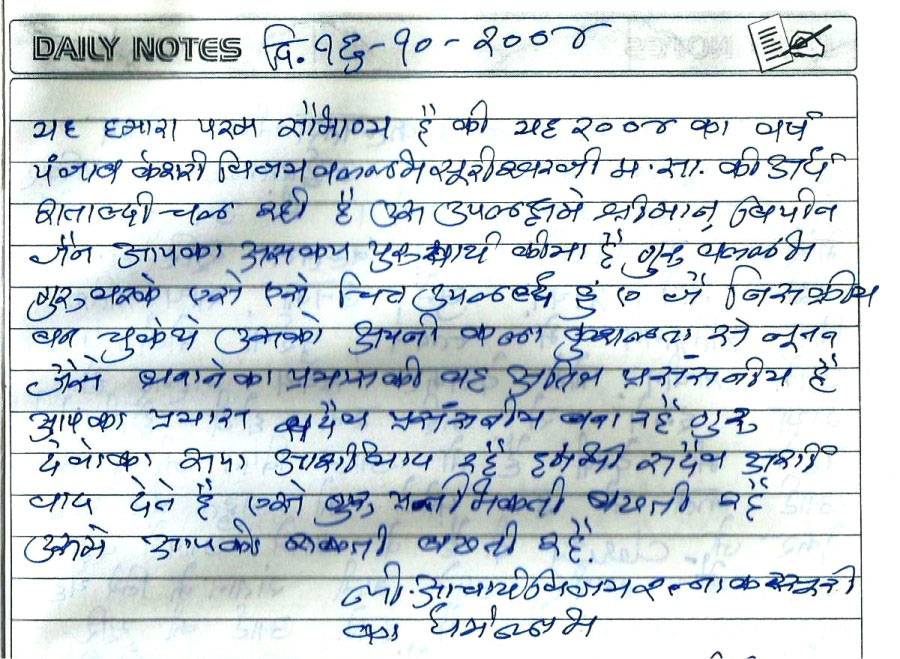 DAILY NOTES दि. १६-१०-२००४
यह हमारा परम सौभाग्य है की यह २००४ का वर्ष
पंजाब केशरी विजय वल्लभ सूरीश्वरजी म.सा. की अर्ध
शताब्दी चल रही है उस उपलक्षमे श्रीमान् विपीन
जैन आपका पुरुषार्थ कीया है गुरु वल्लभ
गुरुवरके एसे एसे चित्र जो
बन चुकेथे उसको अपनी कला कुशलता से नूतन
जैसे बनानेका प्रयास की वह अतिव प्रसंसनीय है
आपका प्रयास सदैव प्रसंसनीय बना रहे गुरु
देवोका सदा आशीर्वाद रहे हमभी सदैव आशी
र्वाद देते है एसे गुरु प्रती भकती बढती रहे
उसमे आपकी शक्ती बढती रहे.
ली. आचार्य विजय रत्नाकरसूरी
का धर्मलाभ